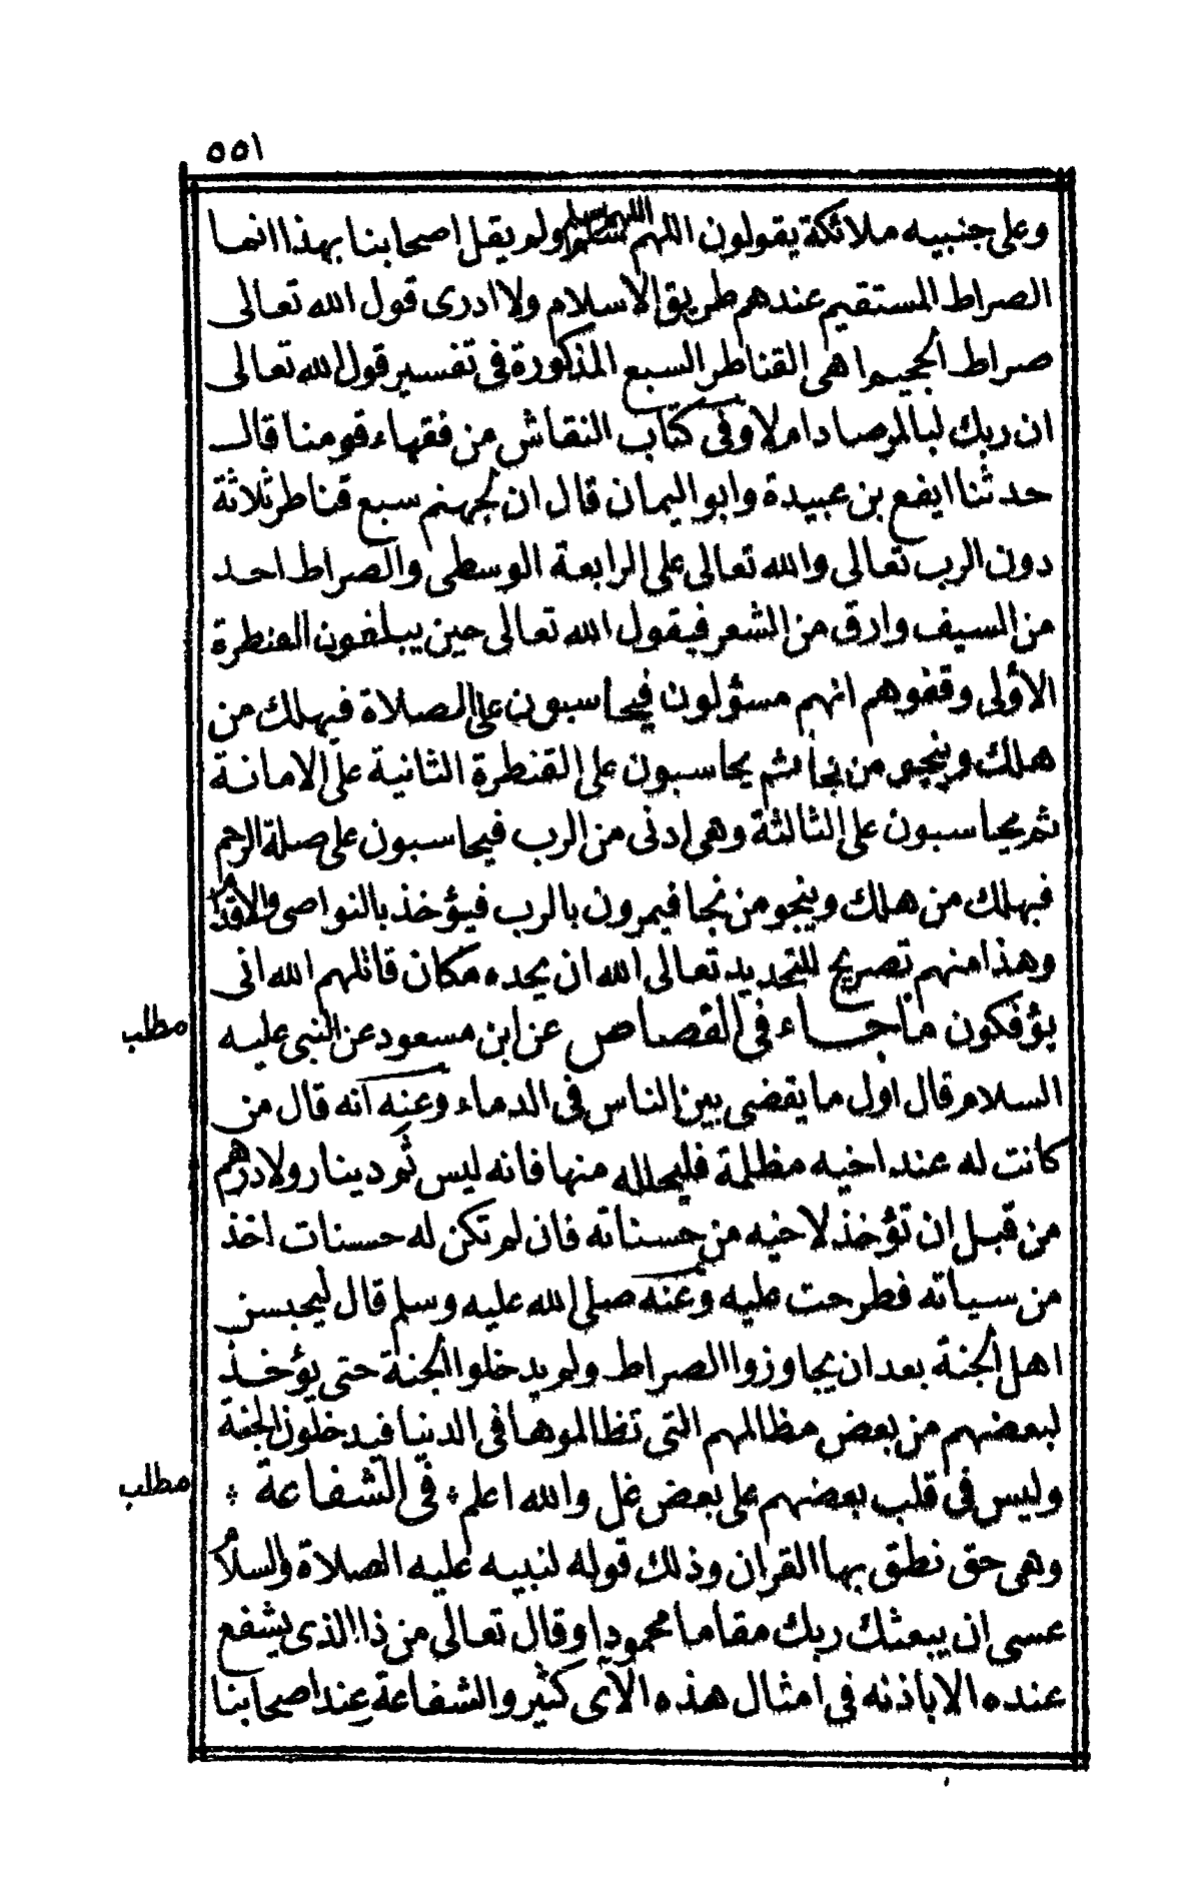 ٥٥١
وعلى جنبيه ملائكة يقولون اللهم سلم اللهم سلم ولم يقل اصحابنا بهذا انما
الصراط المستقيم عندهم طريق الاسلام ولا ادرى قول الله تعالى
صراط الجحيم اهى القناطر السبع المذكورة فى تفسير قول الله تعالى
ان ربك لبالمرصاد ام لا وفى كتاب النقاش من فقهاء قومنا قال
حدثنا ايفع بن عبيدة وابو اليمان قال ان لجهنم سبع قناطر ثلاثة
دون الرب تعالى والله تعالى على الرابعة الوسطى والصراط احد
من السيف وارق من الشعر فيقول الله تعالى حين يبلغون القنطرة
الأولى وقفوهم انهم مسؤلون فيحاسبون على الصلاة فيهلك من
هلك وينجو من نجا ثم يحاسبون على القنطرة الثانية على الامانة
ثم يحاسبون على الثالثة وهى ادنى من الرب فيحاسبون على صلة الرحم
فيهلك من هلك وينجو من نجا فيمرون بالرب فيؤخذ بالنواصى والاقدام
وهذا منهم تصريح للتحديد تعالى الله ان يحده مكان قاتلهم الله انى
يؤفكون ما جاء فى القصاص عن ابن مسعود عن النبى عليه
مطلب
السلام قال اول ما يقضى بين الناس فى الدماء وعنه انه قال من
كانت له عند اخيه مظلمة فليحلله منها فانه ليس ثم دينار ولا درهم
من قبل ان تؤخذ لاخيه من حسناته فان لم تكن له حسنات اخذ
من سياته فطرحت عليه وعنه صلى الله عليه وسلم قال ليحبسن
اهل الجنة بعد ان يجاوزوا الصراط ولم يدخلوا الجنة حتى يؤخذ
لبعضهم من بعض مظالمهم التى تظالموها فى الدنيا فيدخلون الجنة
وليس فى قلب بعضهم على بعض غل والله اعلم ؛ فى الشفاعة ؛
مطلب
وهى حق نطق بها القران وذلك قوله لنبيه عليه الصلاة والسلام
عسى ان يبعثك ربك مقاما محمودا وقال تعالى من ذا الذى يشفع
عنده الا باذنه فى امثال هذه الآى كثير والشفاعة عند اصحابنا